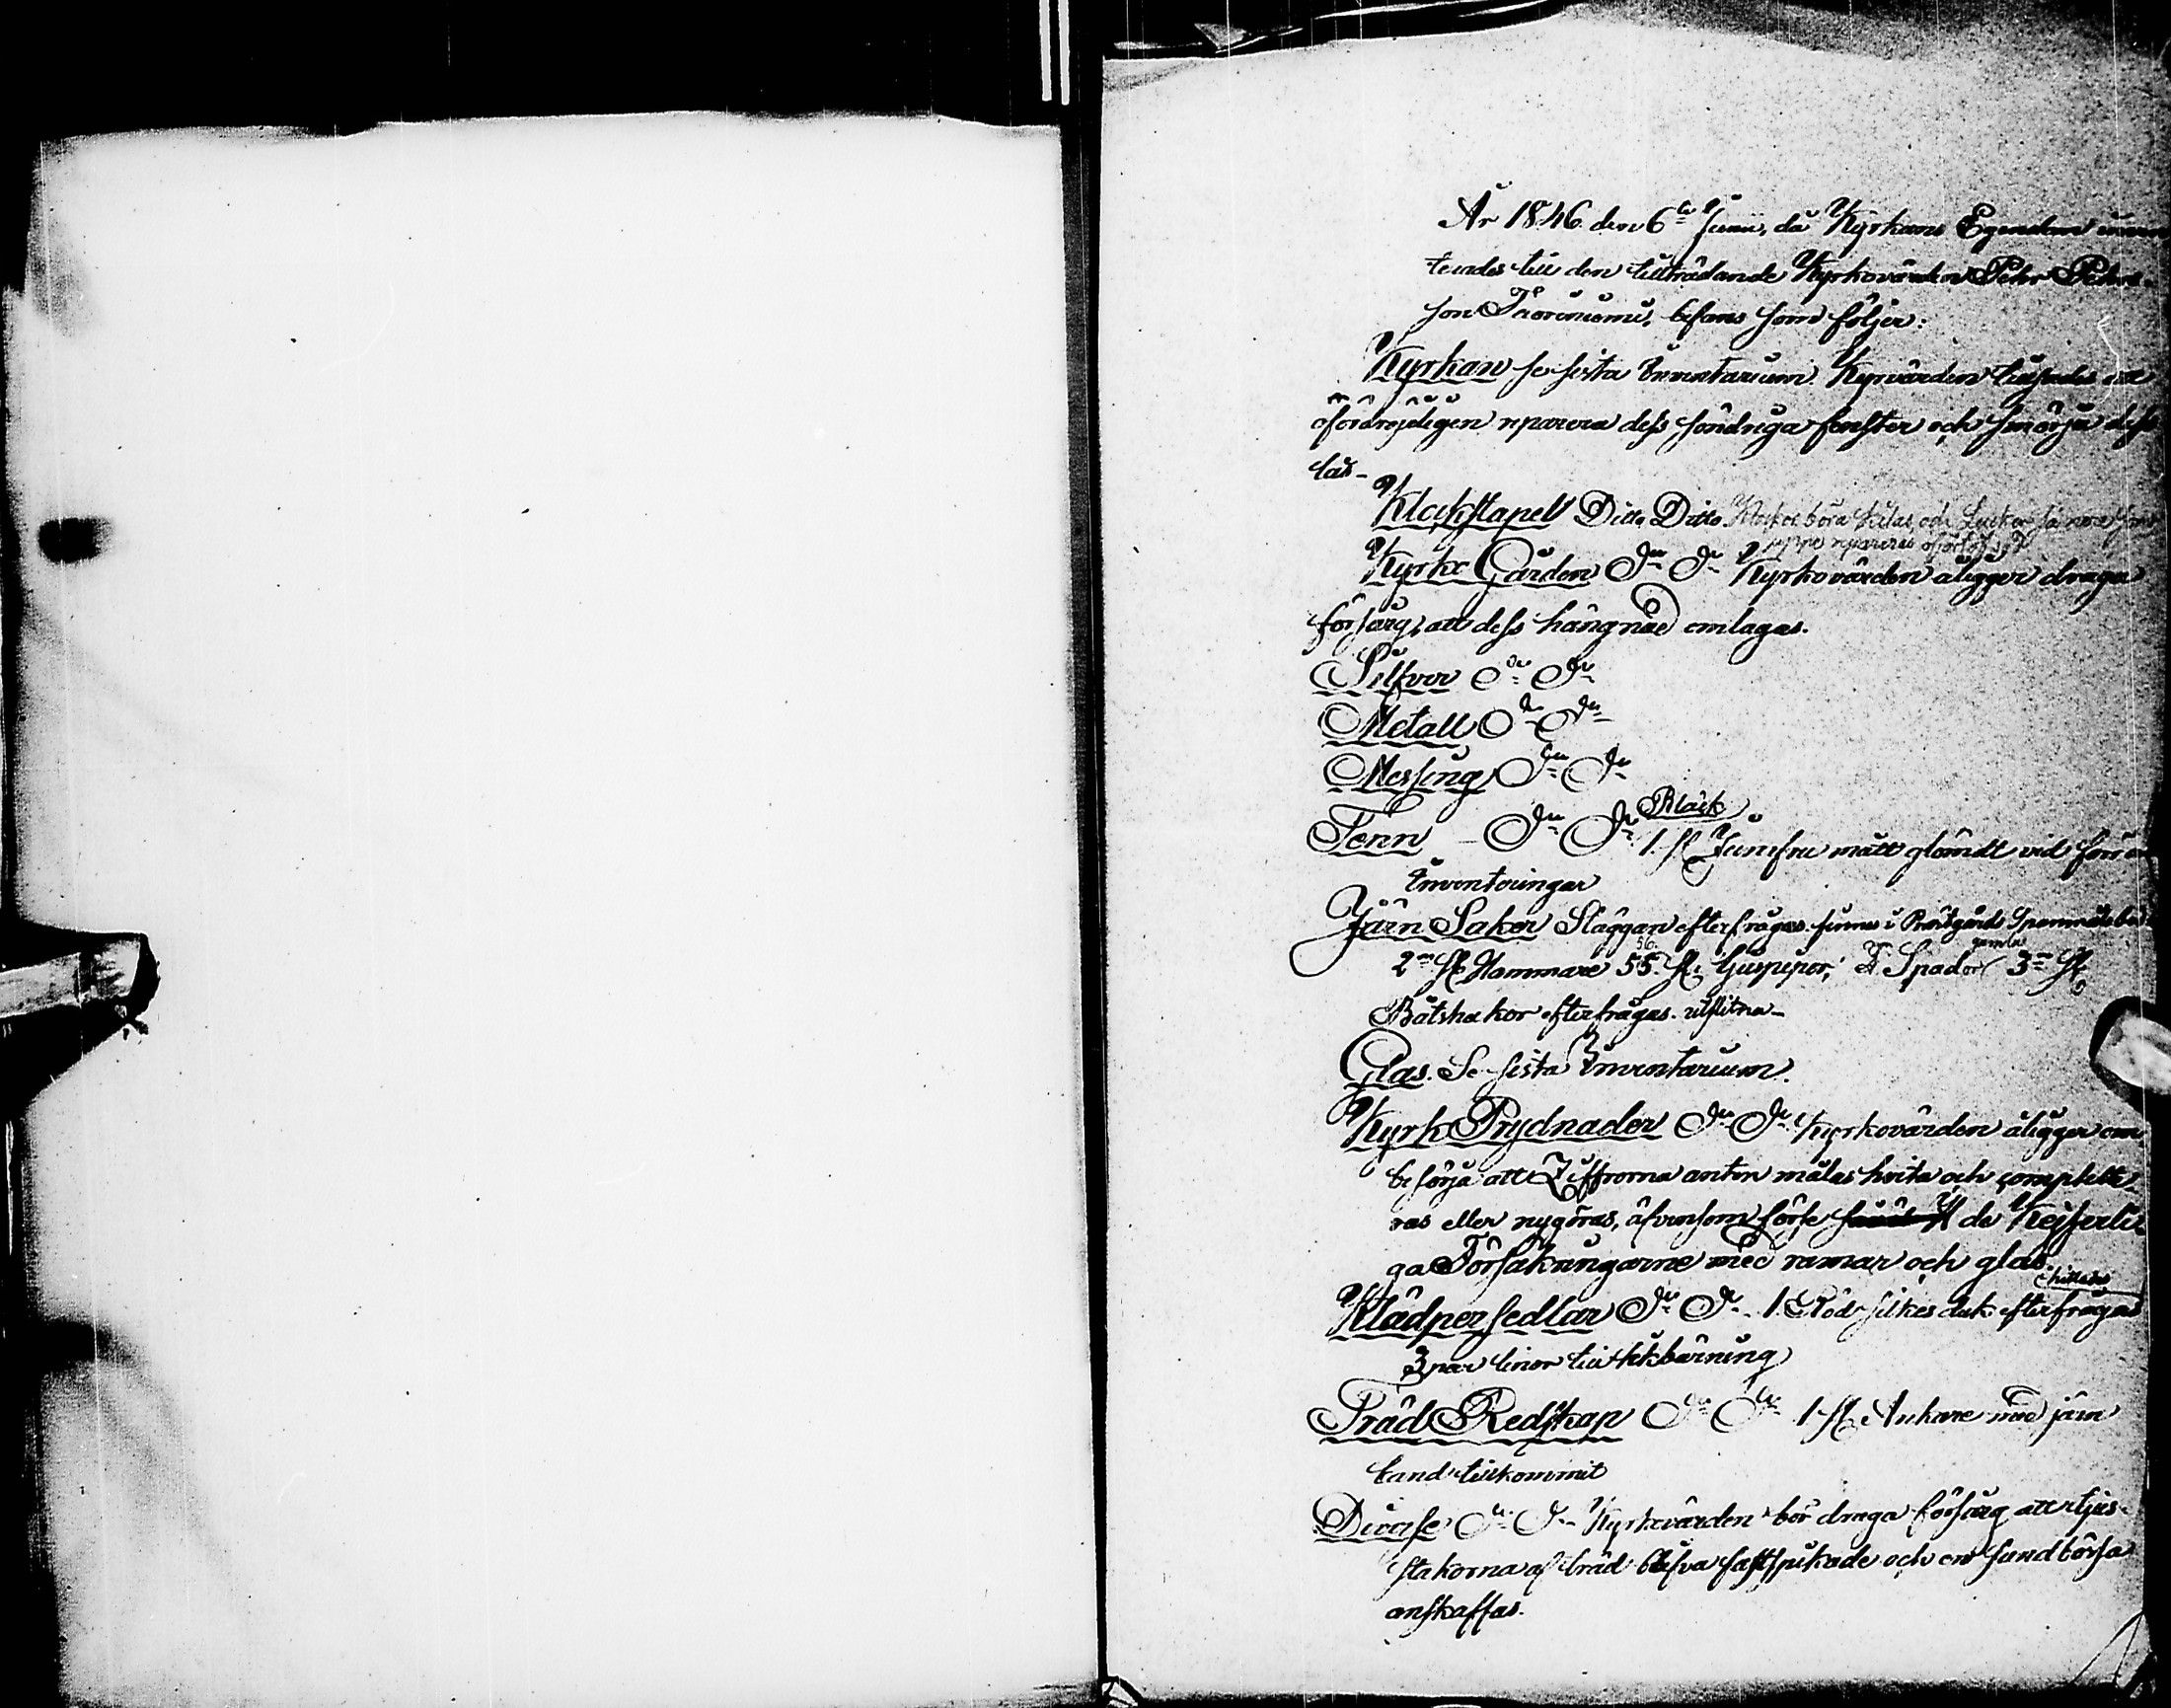 År 1846 den 6te Junii, då Kyrkans Egendom inven
terades till den tillträdande Kyrkovärden Pehr Pehrs-
son befans som följer:
Kyrkan se sista Inventarium. Kyrvärden tillsades att
ofördröjeligen reparera dess söndriga fenster och smörja dess
lås-
Klockstapel Ditto Ditto. Klockor böra kilas och Luckor
uppe repareras
Kyrko Gården Do Do Kyrkovärden åligger draga
försårg, att dess hängnad omlagas.
Silfver Do Do
Metall Do Do
Messing Do Do
Bläck
Tenn - Do Do 1. st Jumfru mått glömdt vid förra
Inventeringar
Järn Saker Släggan efterfrågas. finnes i Prestgårds Spannmåls bod
56. gamla
2ne st Hammare 55. st. ljuspipor, Spador 3ne st
Båtshakor efterfrågas. utslitna-
Glas. Se sista Inventarium.
Kyrk Prydnader Do Do Kyrkovärden åligger om
besörja att Ziffrorna anten målas hvita och complette-
ras eller nygöras, äfvensom förse de Kejserli-
ga Försäkringarne med ramar och glas.
hittades
Klädpersedlar Do Do 1. Röd silkes duk efterfrågas
3 par linor till likbärning
Träd Redskap Do Do 1 st Ankare med järn
band tillkommit
Diverse Do Do Kyrkvärden bör draga försårg att ljus-
stakorna af bräd blifva fastspikade och en sundbörsa
anskaffas.